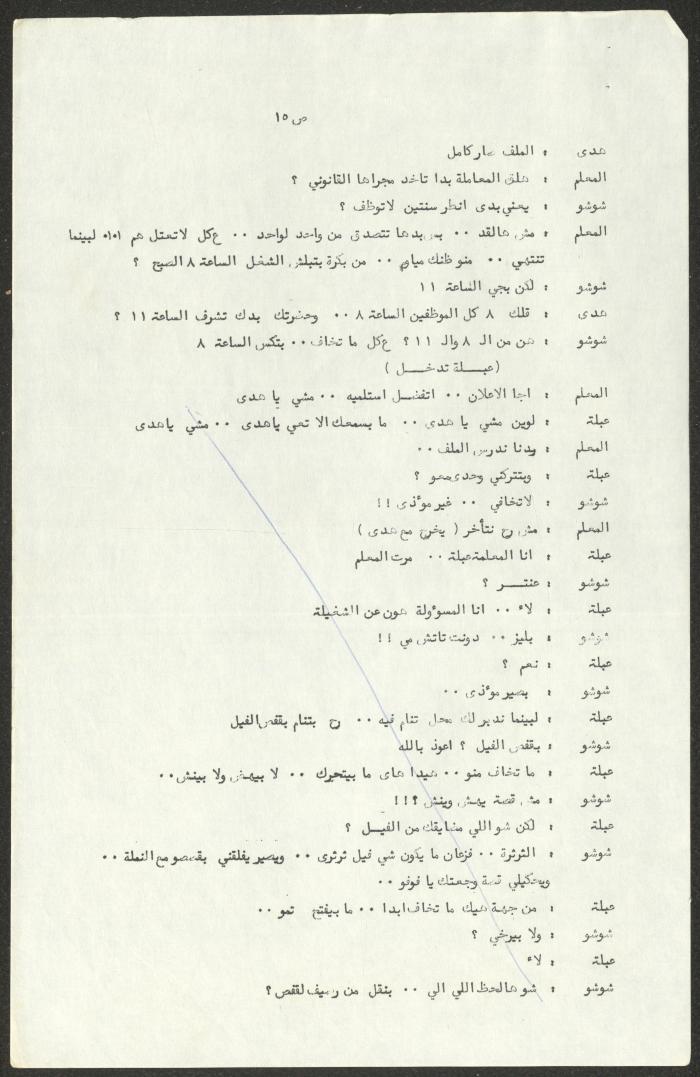 ص ١٥
هدى : الملف صار كامل
المعلم : هلق المعاملة بدا تاخد مجراها القانوني ؟
شوشو : يعني بدى انطر سنتين لاتوظف ؟
المعلم : مش هالقد ٠٠ بس بدها تتصدق من واحد لواحد ٠٠ ع كل لاتعتل هم ٠٠١ لبينما
تنتهي ٠٠ منو ظنك مياوم ٠٠ من بكرة بتبلش الشغل الساعة ٨ الصبح ؟
شوشو : لكن بجي الساعة ١١
هدى : قلك ٨ كل الموظفين الساعة ٨ ٠٠ وحضرتك بدك تشرف الساعة ١١ ؟
شوشو : هن من الـ ٨ والـ ١١ ؟ ع كل ما تخاف ٠٠ بتكس الساعة ٨
( عبـلة تدخـل )
المعلم : اجا الاعلان ٠٠ اتفضـل استلميه ٠٠ مشي يا هدى
عبلة : لوين مشي يا هدى ٠٠ ما بسمعك الا تعي ياهدى ٠٠ مشي ياهدى
المعلم : بدنا ندرس الملف ٠٠
عبلة : وبتتركني وحدى معو ؟
شوشو : لاتخافي ٠٠ غير موٴذى !!
المعلم : مش رح نتأخر ( يخرج مع هدى )
عبلة : انا المعلمة عبلة ٠٠ مرت المعلم
شوشو : عنتــر ؟
عبلة : لاء ٠٠ انا المسوٴولة هون عن الشغيلة
شوشو : بليز ٠٠ دونت تاتش مي !!
عبلة : نعم ؟
شوشو : بصير موٴذى ٠٠
عبلة : لبينما ندبر لك محل تنام فيه ٠٠ رح بتنام بقفص الفيل
شوشو : بقفص الفيل ؟ اعوذ بالله
عبلة : ما تخاف منو ٠٠ هيدا هاى ما بيتحرك ٠٠ لا بيهش ولا بينش ٠٠
شوشو : مش قصة يهش وينش ؟!!
عبلة : لكن شو اللي مضايقك من الفيـل ؟
شوشو : الثرثرة ٠٠ فزعان ما يكون شي فيل ثرثرى ٠٠ ويصير يفلقني بقصصو مع النملة ٠٠
ويحكيلي قصة وجعتك يا فوفو ٠٠
عبلة : من جهة هيك ما تخاف ابدا ٠٠ ما بيفتح تمو ٠٠
شوشو : ولا بيرخي ؟
عبلة : لاء
شوشو : شو هالحظ اللي الي ٠٠ بنقل من رصيف لقفص ؟